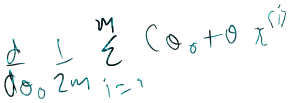 d/dθ₀ 1/2m m Σ i=1 (θ₀+θ x⁽ⁱ⁾